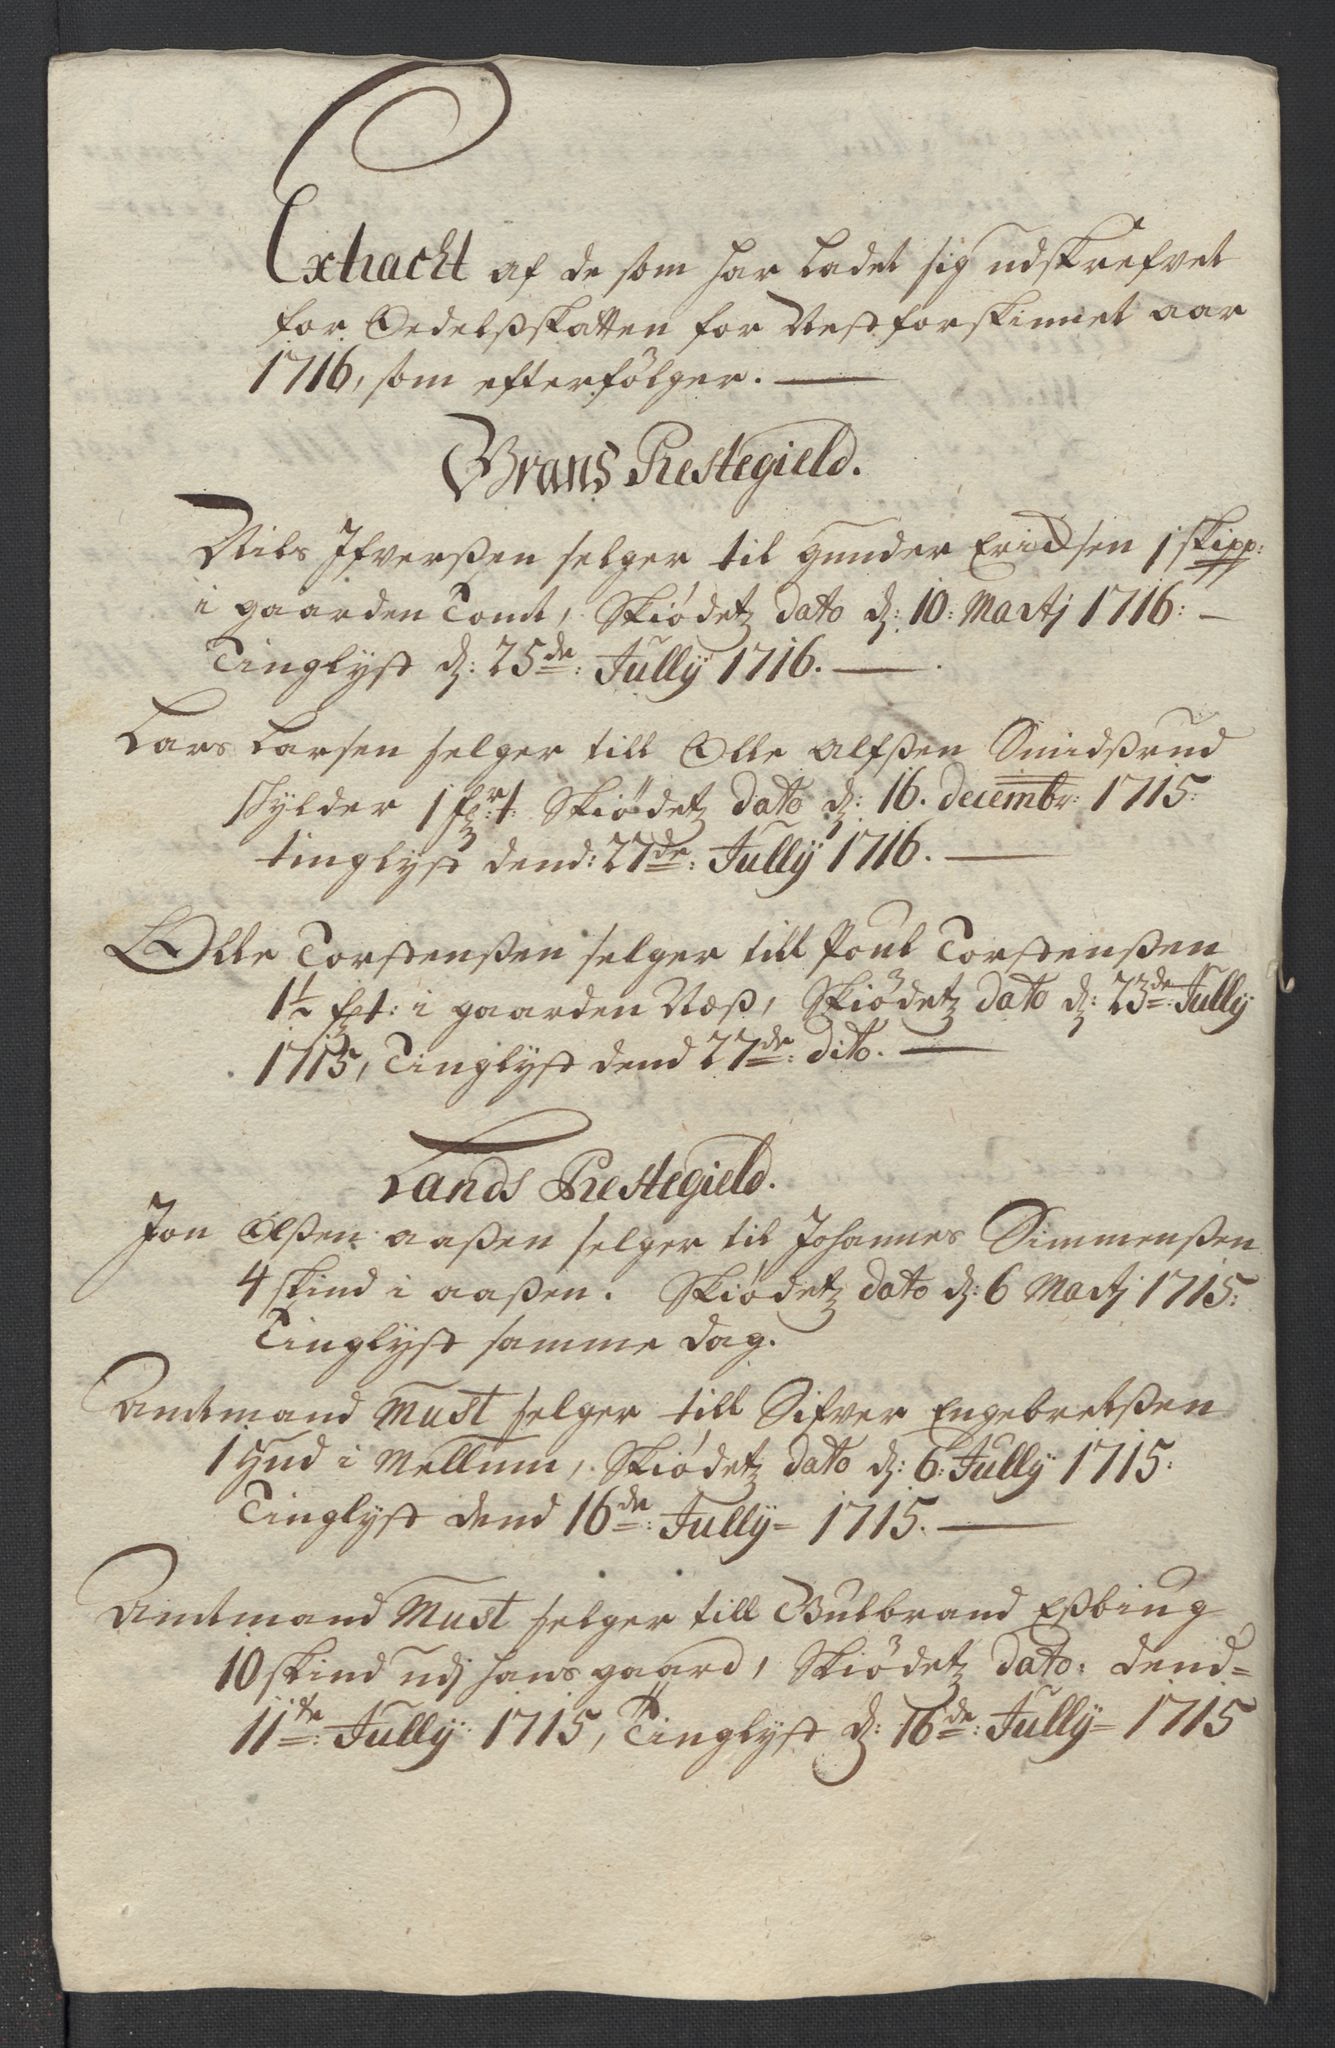 Extract af de som har ladet sig udskrefvet
for Oedelsskatten for Nestforskinnet aar
1716, som efterfölger.
Grans Prestegield.
Nils Ifverßen selger til Gunder Erichsen 1 skipp:
i gaarden Tomt, Skiödetz dato d: 10: Martj 1716:
Tinglyst d: 25de: Jully 1716.
Lars Larsen selger till Olle Alfßen Smidßrud
skylder 1 fr:t: Skiödetz dato d: 16. decembr: 1715:
tinglyst dend: 27de: Jully 1716.
Olle Torstensßen selger till Poul Torstensßen
1½ fzt: i gaarden Næß, Skiödetz dato d: 23de: Jully
1715, Tinglyst dend 27de: dito.
Lands Prestegield.
Jon Olßen aaßen selger til Johannes Simmensßen
4 skind i aaßen. Skiödetz dato d: 6 Martj 1715:
Tinglyst samme dag.
Amtmand Must selger till Sifver Engebretßen
1 Hud i Mellum, Skiödetz dato d: 6: Jully 1715:
Tinglyst dend 16de: Jully 1715.
Amtmand Must selger till Gulbrand Eßbiug
10 skind udj hans gaard, Skiödetz dato: dend=
11te: Jully 1715, Tinglyst d: 16de: Jully= 1715